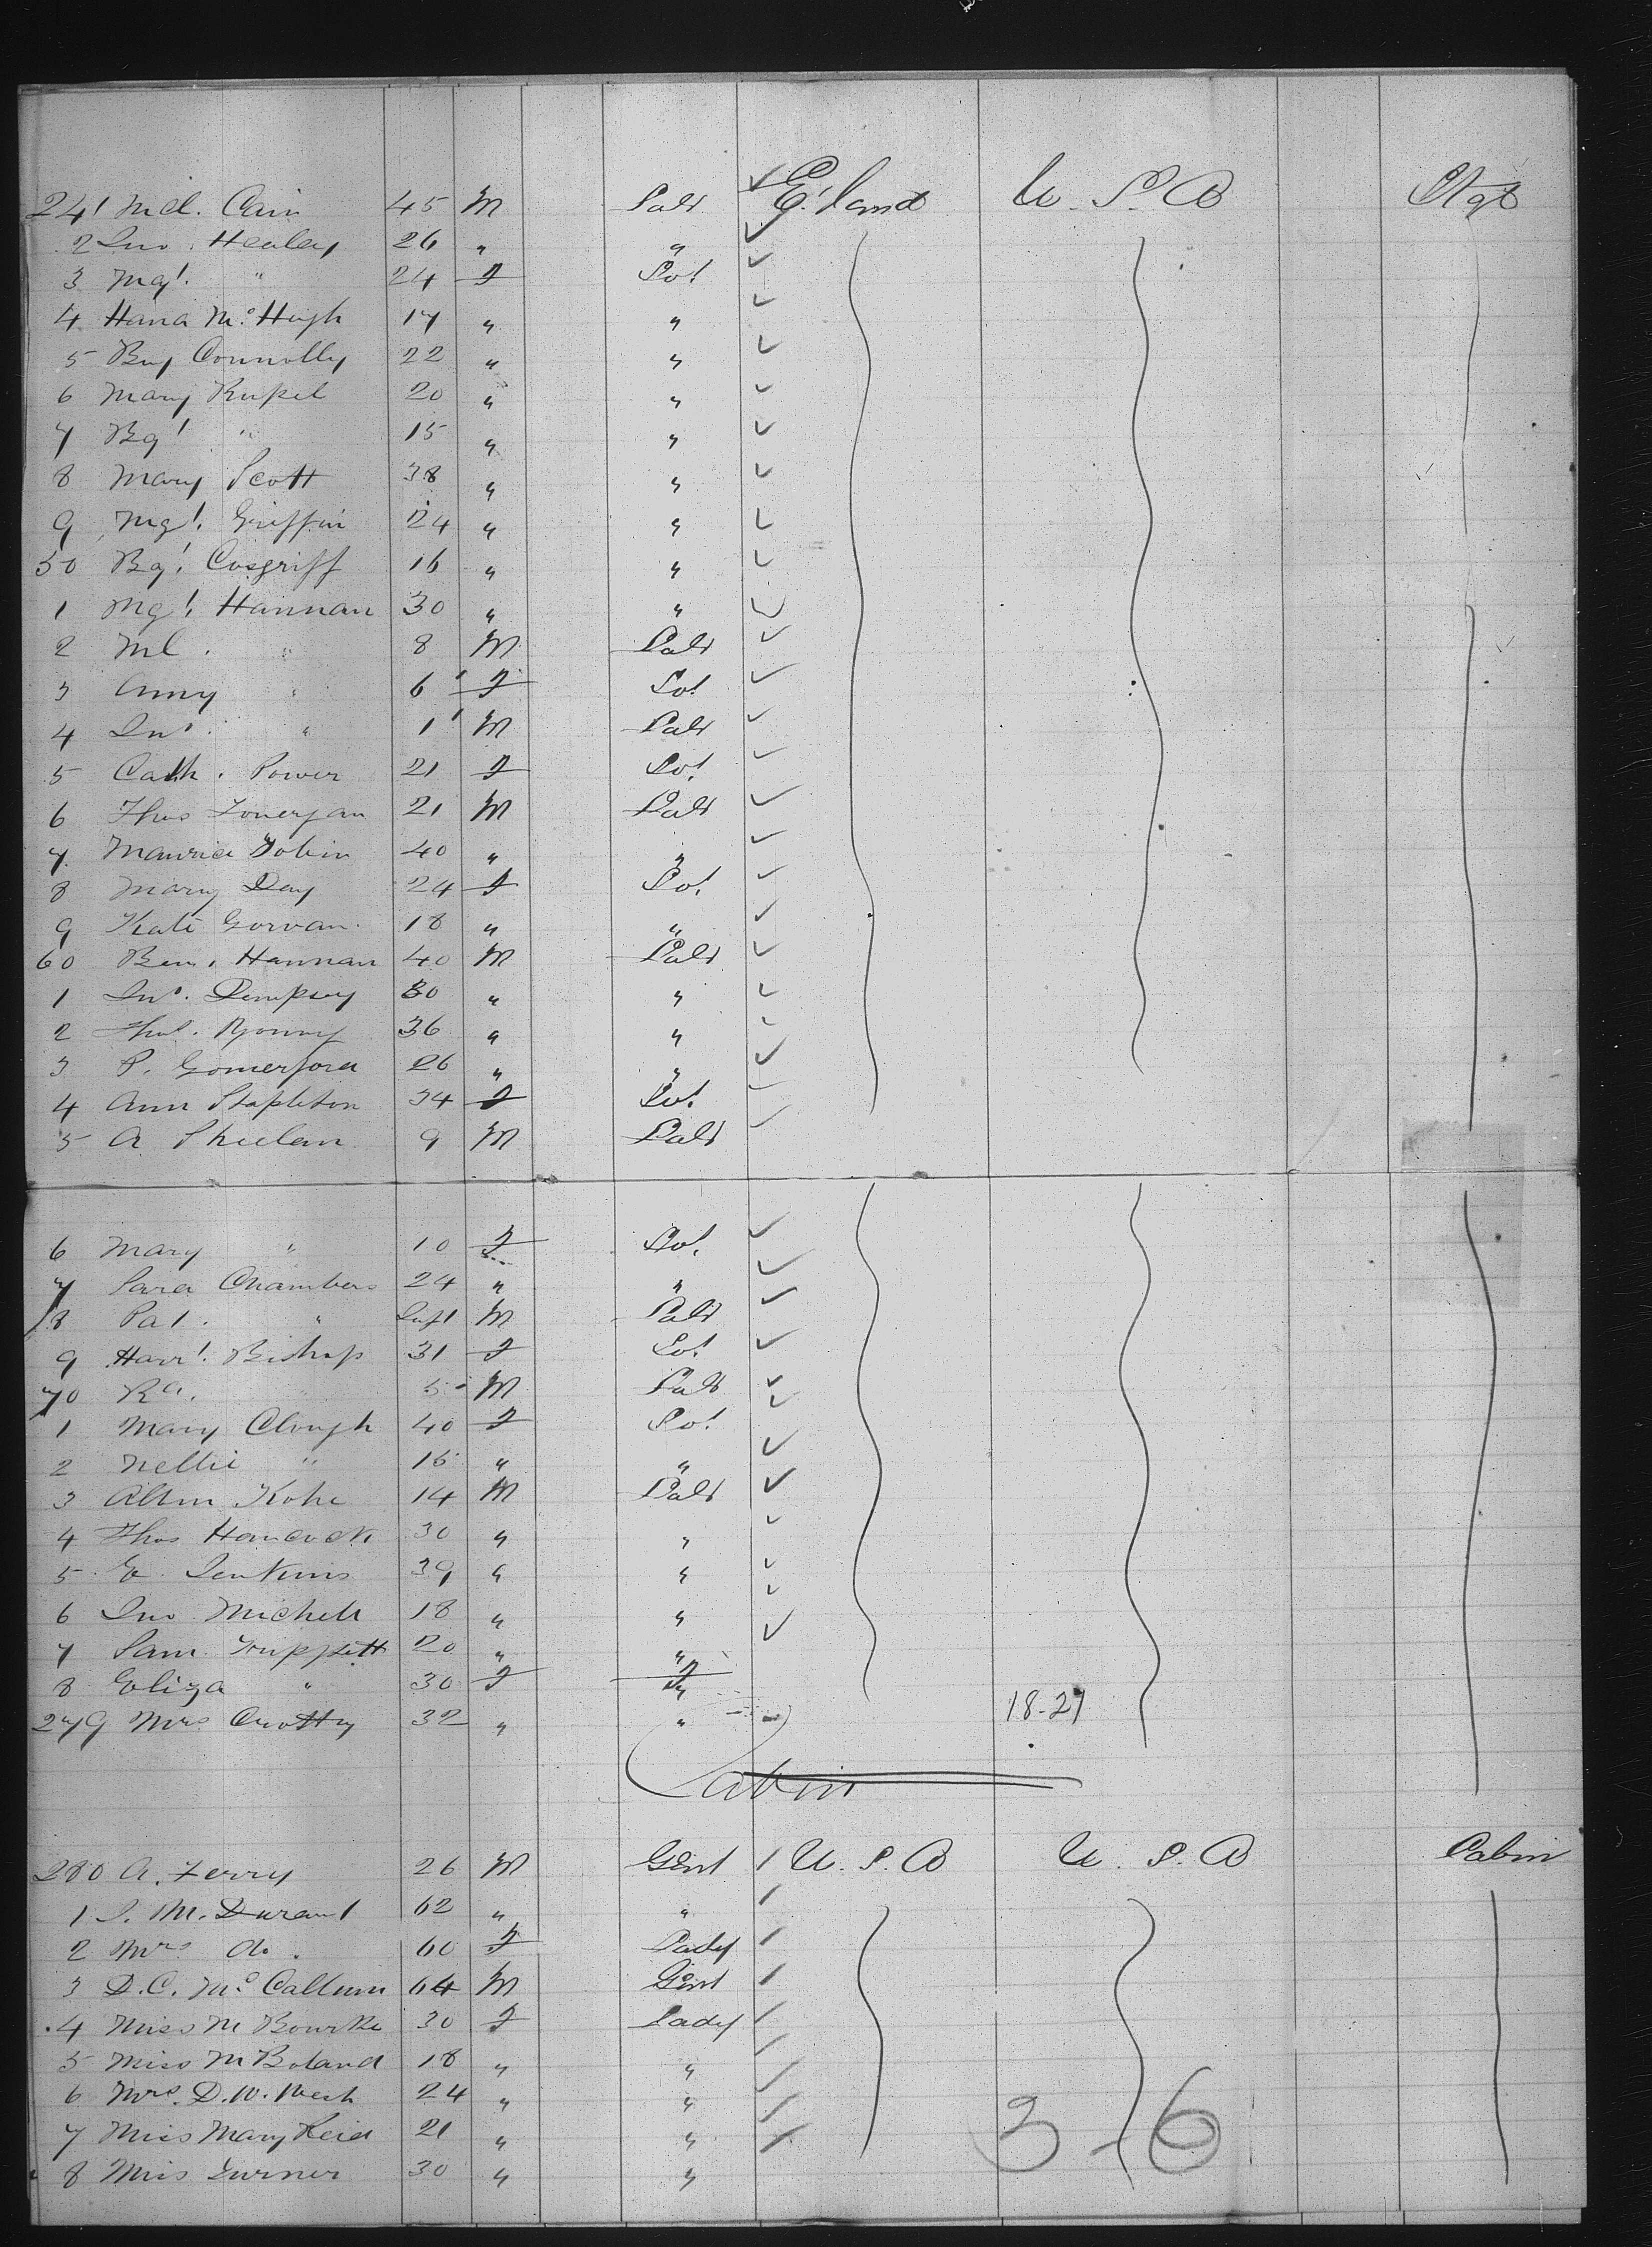 241 Mcl. Cain 45 M Labr E'land U. S. A Stge
2 Jno Healey 26 " "
3 Mgt. " 24 F Spt
4 Hana McHugh 17 " "
5 Bry Connolly 22 " "
6 Mary 20 " "
7 Bgt " 15 " "
8 Mary Scott 38 " "
9 Mgt. Griffin 24 " "
50 Bgt. Cosgriff 16 " "
1 Mgt. Hannan 30 " "
2 Ml. " 8 M Labr
3 Anny " 6 F Spt
4 Jno. " 1 M Labr
5 Cath. Power 21 F Spt
6 Thos Lonergan 21 M Labr
7 Maurice Tobin 40 " "
8 Mary Day 24 F Spt.
9 Kate Gorvan 18 " "
60 Ben. Hannan 40 M Labr
1 Jno. Dempsey 30 " "
2 36 " "
3 P. Gomerford 26 " "
4 Ann Stapleton 34 F Spt.
5 A Pheelan 9 M Labr
6 Mary " 10 F Spt.
7 Sara Chambers 24 " "
8 Pat. " Inft M Labr
9 Harrt. Bishop 31 F Spt
70 Rd. " 5 M Labr
1 Mary Clough 40 F Spt
2 Nellie " 16 " "
3 Kohe 14 M Labr
4 Thos Hancock 30 " "
5 E Jenkins 39 " "
6 Jno Michell 18 " "
7 Sam. Trippett 20 " "
8 Eliza " 30 F "
279 Mrs Crotty 32 " " 18-21
Cabin
280 A. Ferry 26 M Gent U. S. A U. S. A Cabin
1 J. M. Durant 62 " "
2 Mrs do. 60 F Lady
3 D. C. McCallum 64 M Gent
4 Miss M Bourke 30 F Lady
5 Miss M Boland 18 " "
6 Mrs. D. W. 24 " "
7 Miss Mary Reid 21 " "
8 Miss Turner 30 " "
3-6